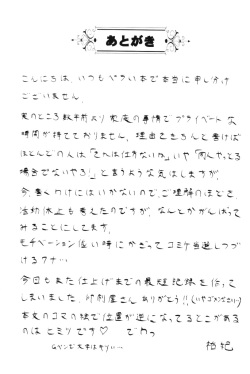 あとがき
こんにちは、いつもペラい本で本当に申し分け
ございません。
実のところ数年前より家庭の事情でプライベートな
時間が持てておりません。理由をきちんと書けば
ほとんどの人は「それは仕方ないね」いや「何んやってる
場合でないやろ!」と言うような気はしますが、
今書くわけにはいかないので、ご理解のほどを
活動休止も考えたのですが、なんとかがんばって
みることにしてます。
モチベーション低い時にかぎってコミケ当選しつづ
けるアナ…
今回もまた仕上げまでの最短記録を作って
しまいました。印刷屋さんありがとう!!(いやゴメンなさい)
本文のコマの絵で位置が逆になってるとこがある
のはヒミツです♡ でわっ
Gペンだ文字はキツい…
柏杞